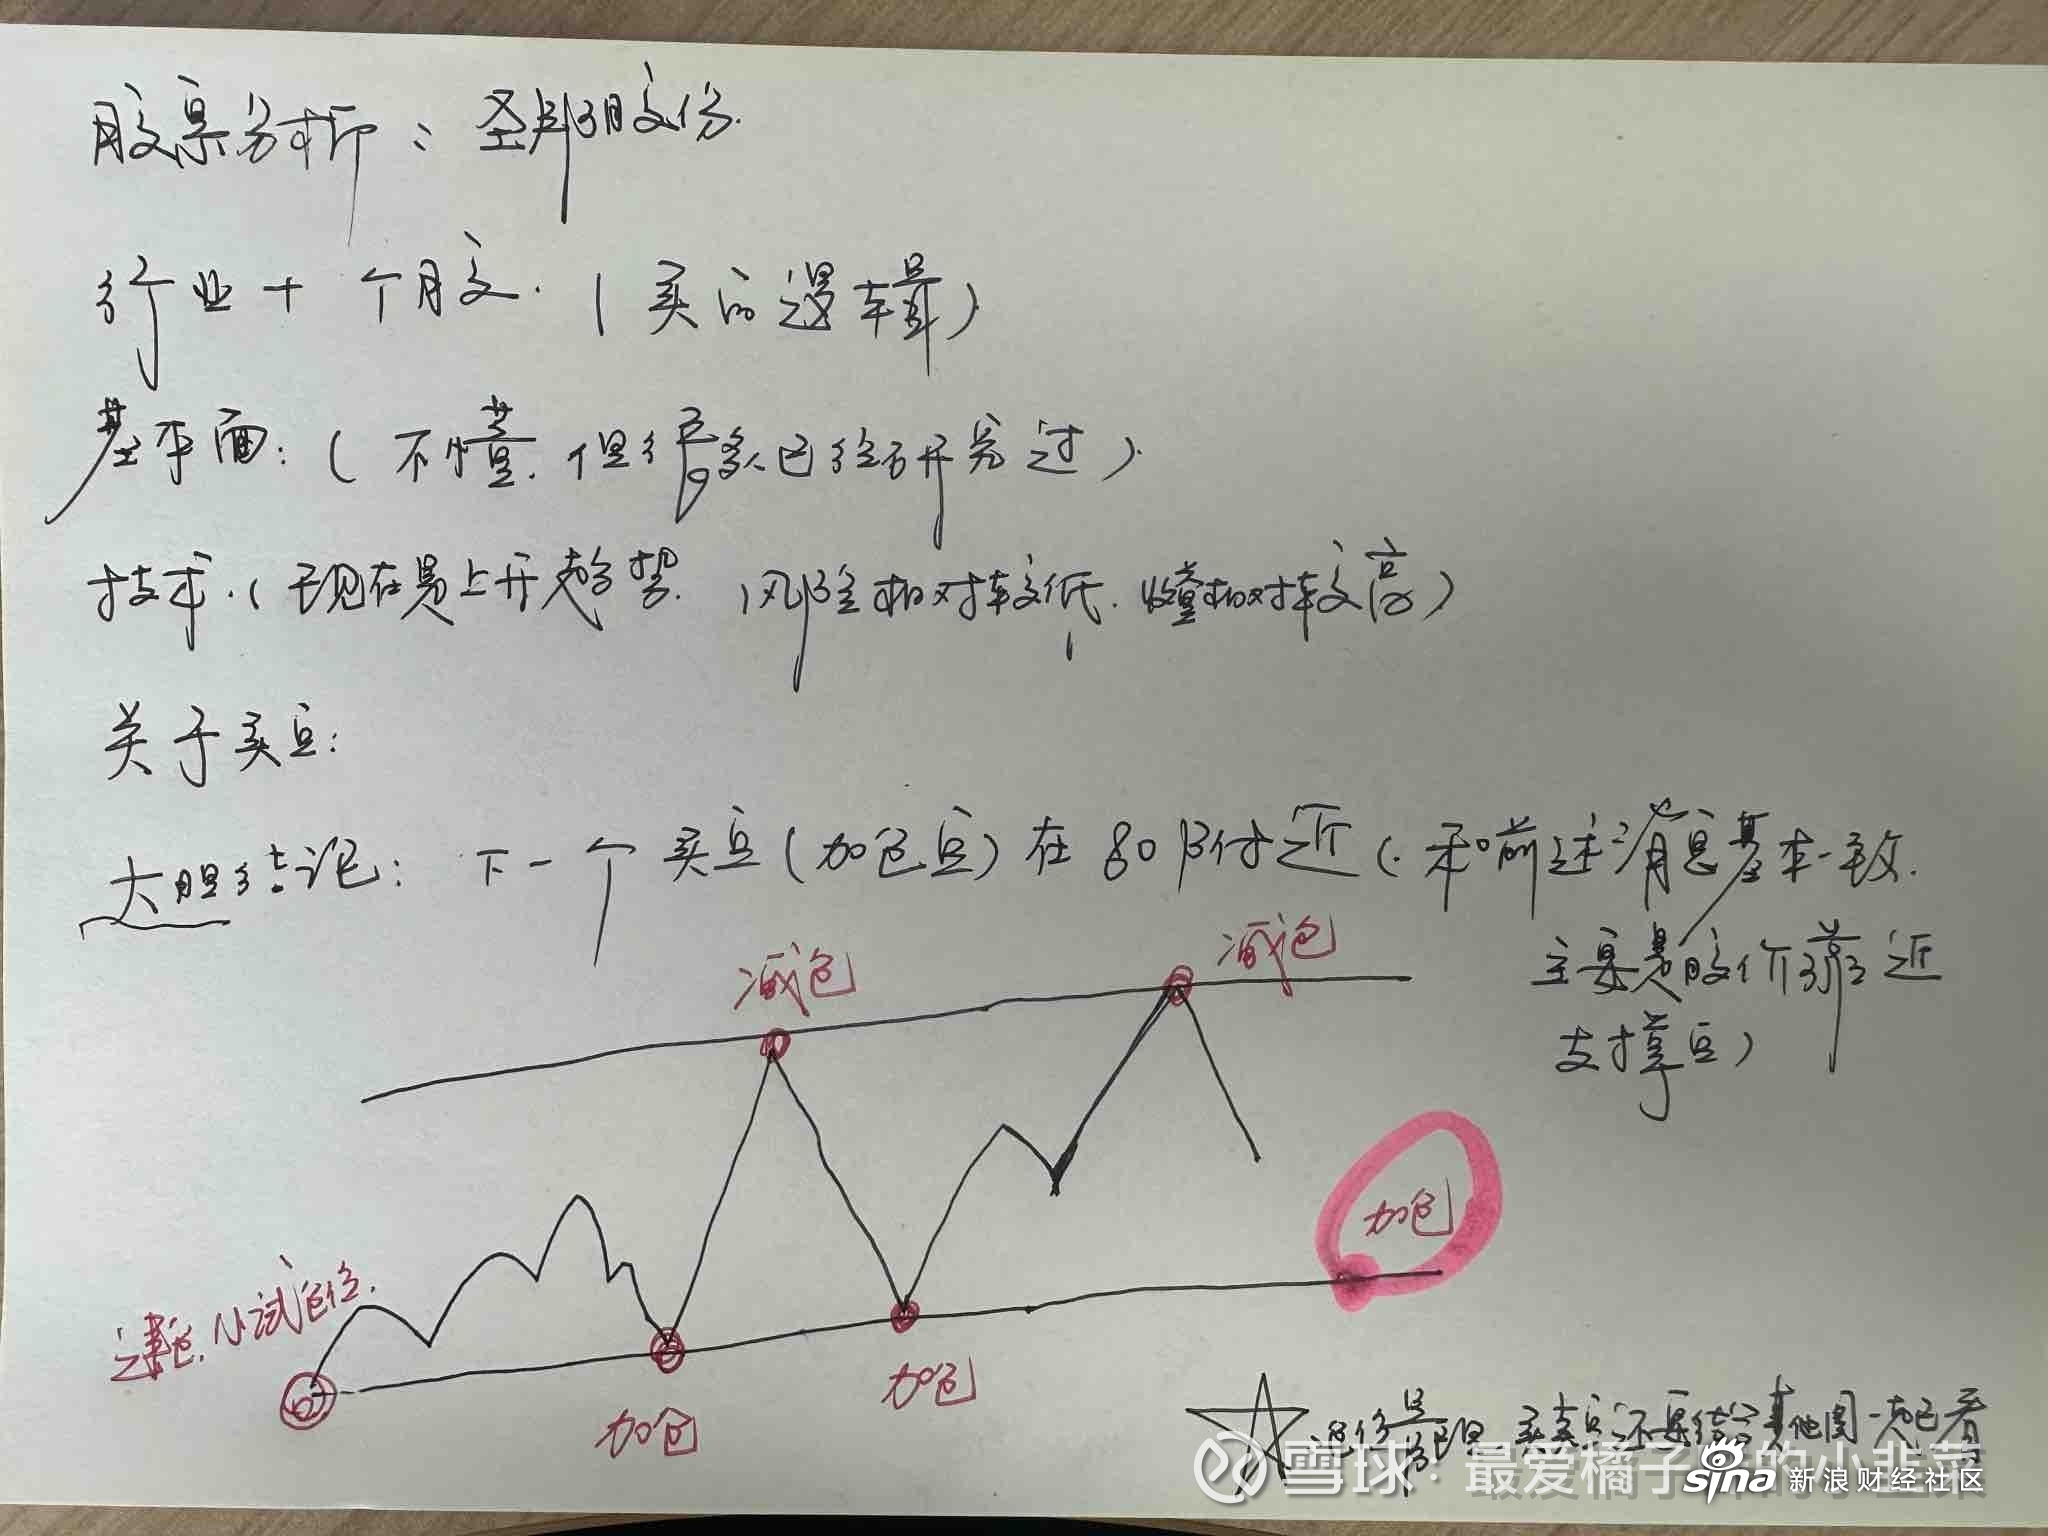 股票分析：圣邦股份.
行业+个股.（买的逻辑）
基本面：（不懂.但很多人已经研究过）.
技术.（现在是上升趋势.风险相对较低.收益相对较高）
关于买点：
大胆结论：下一个买点（加仓点）在80附近（.和前述消息基本一致.
主要是股价靠近
支撑点）
减仓
减仓
加仓
建仓.小试仓位.
加仓
加仓
买卖点还要结合其他图一起看
雪球：最爱橘子 的小韭菜
sina 新浪财经社区